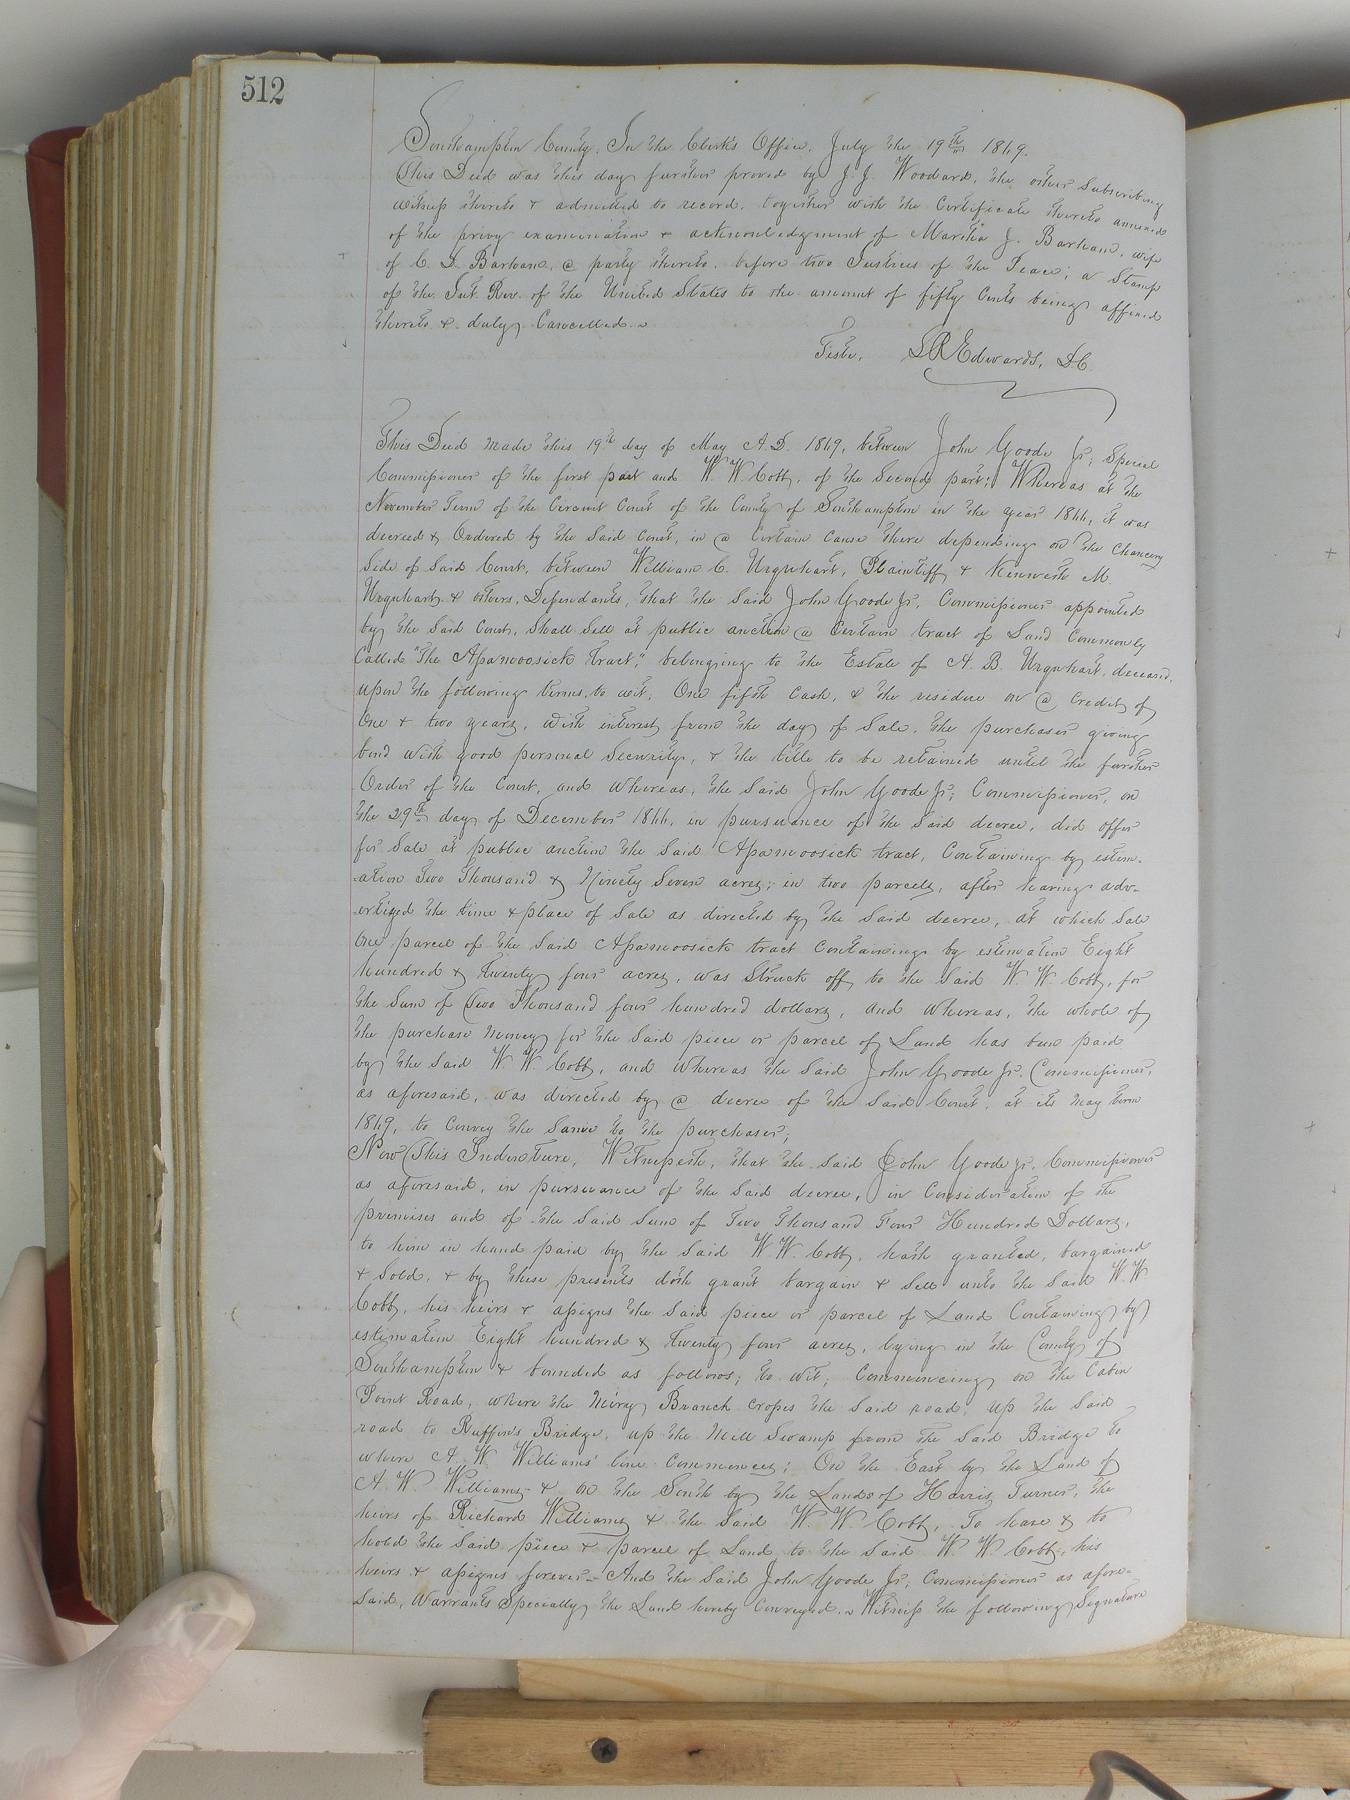 512
Southampton County. In the Clerk's Office. July the 19th 1869.
This Deed was this day further proved by J. J. Woodard, the other Subscribing
witness thereto & admitted to record, together with the Certificate thereto annexed
of the privy examination & acknowledgment of Martha J. Barham, wife
of C. D. Barham, a party thereto, before two Justices of the Peace; a Stamp
of the Int. Rev. of the United States to the amount of fifty Cents being affixed
thereto & duly Cancelled.
Teste, L R Edwards, D.C.
This Deed made this 19th day of May A.D. 1869, between John Goode Jr; Special
Commissioner of the first part and W. W. Cobb, of the Second part; Whereas at the
November Term of the Circuit Court of the County of Southampton in the year 1866, it was
decreed & Ordered by the Said Court, in a Certain Cause there depending on the Chancery
Side of Said Court, between William C. Urquhart, Plaintiff & Kenneth M.
Urquhart & others, Defendants, that the Said John Goode Jr. Commissioner appointed
by the Said Court, Shall Sell at public auction a Certain tract of Land Commonly
Called "The Apamoosick Tract," belonging to the Estate of A. B. Urquhart, deceased,
upon the following terms, to wit, One fifth Cash, & the residue on a Credit of
One & two years, with interest from the day of Sale, the purchaser giving
bond with good personal Security, & the title to be retained until the further
Order of the Court, and whereas, the Said John Goode Jr; Commissioner, on
the 29th day of December 1866, in pursuance of the Said decree, did offer
for Sale at public auction the Said Apamoosick tract, Containing by estim-
-ation Two Thousand & Ninety Seven acres; in two parcels, after having adv-
-ertized the time & place of Sale as directed by the Said decree, at which Sale
One parcel of the Said Apamoosick tract Containing by estimation Eight
hundred & Twenty four acres, was Struck off to the Said W. W. Cobb, for
the Sum of Two Thousand four hundred dollars, and whereas, the whole of
the purchase money for the Said piece or parcel of Land has been paid
by the Said W. W. Cobb, and whereas the Said John Goode Jr. Commissioner,
as aforesaid, was directed by a decree of the Said Court, at its May term
1869, to Convey the Same to the purchaser;
Now This Indenture, Witnesseth, that the Said John Goode Jr. Commissioner
as aforesaid, in pursuance of the Said decree, in Consideration of the
premises and of the Said Sum of Two Thousand Four Hundred Dollars,
to him in hand paid by the Said W. W. Cobb, hath granted, bargained
& Sold, & by these presents doth grant bargain & Sell unto the Said W. W.
Cobb, his heirs & assigns the Said piece or parcel of Land Containing by
estimation Eight hundred & Twenty four acres, lying in the County of
Southampton & bounded as follows; to wit; Commencing on the Cabin
Point Road, where the Miry Branch crosses the Said road, up the Said
road to Ruffin's Bridge, up the Mill Swamp from the Said Bridge to
where A. W. Williams' line Commences; On the East by the Land of
A. W. Williams & on the South by the Lands of Harris Turner, the
heirs of Richard Williams & the Said W. W. Cobb, To have & to
hold the Said piece & parcel of Land, to the Said W. W. Cobb, his
heirs & assigns forever. And the Said John Goode Jr; Commissioner as afore-
Said, Warrants Specially the Land hereby Conveyed. Witness the following Signature